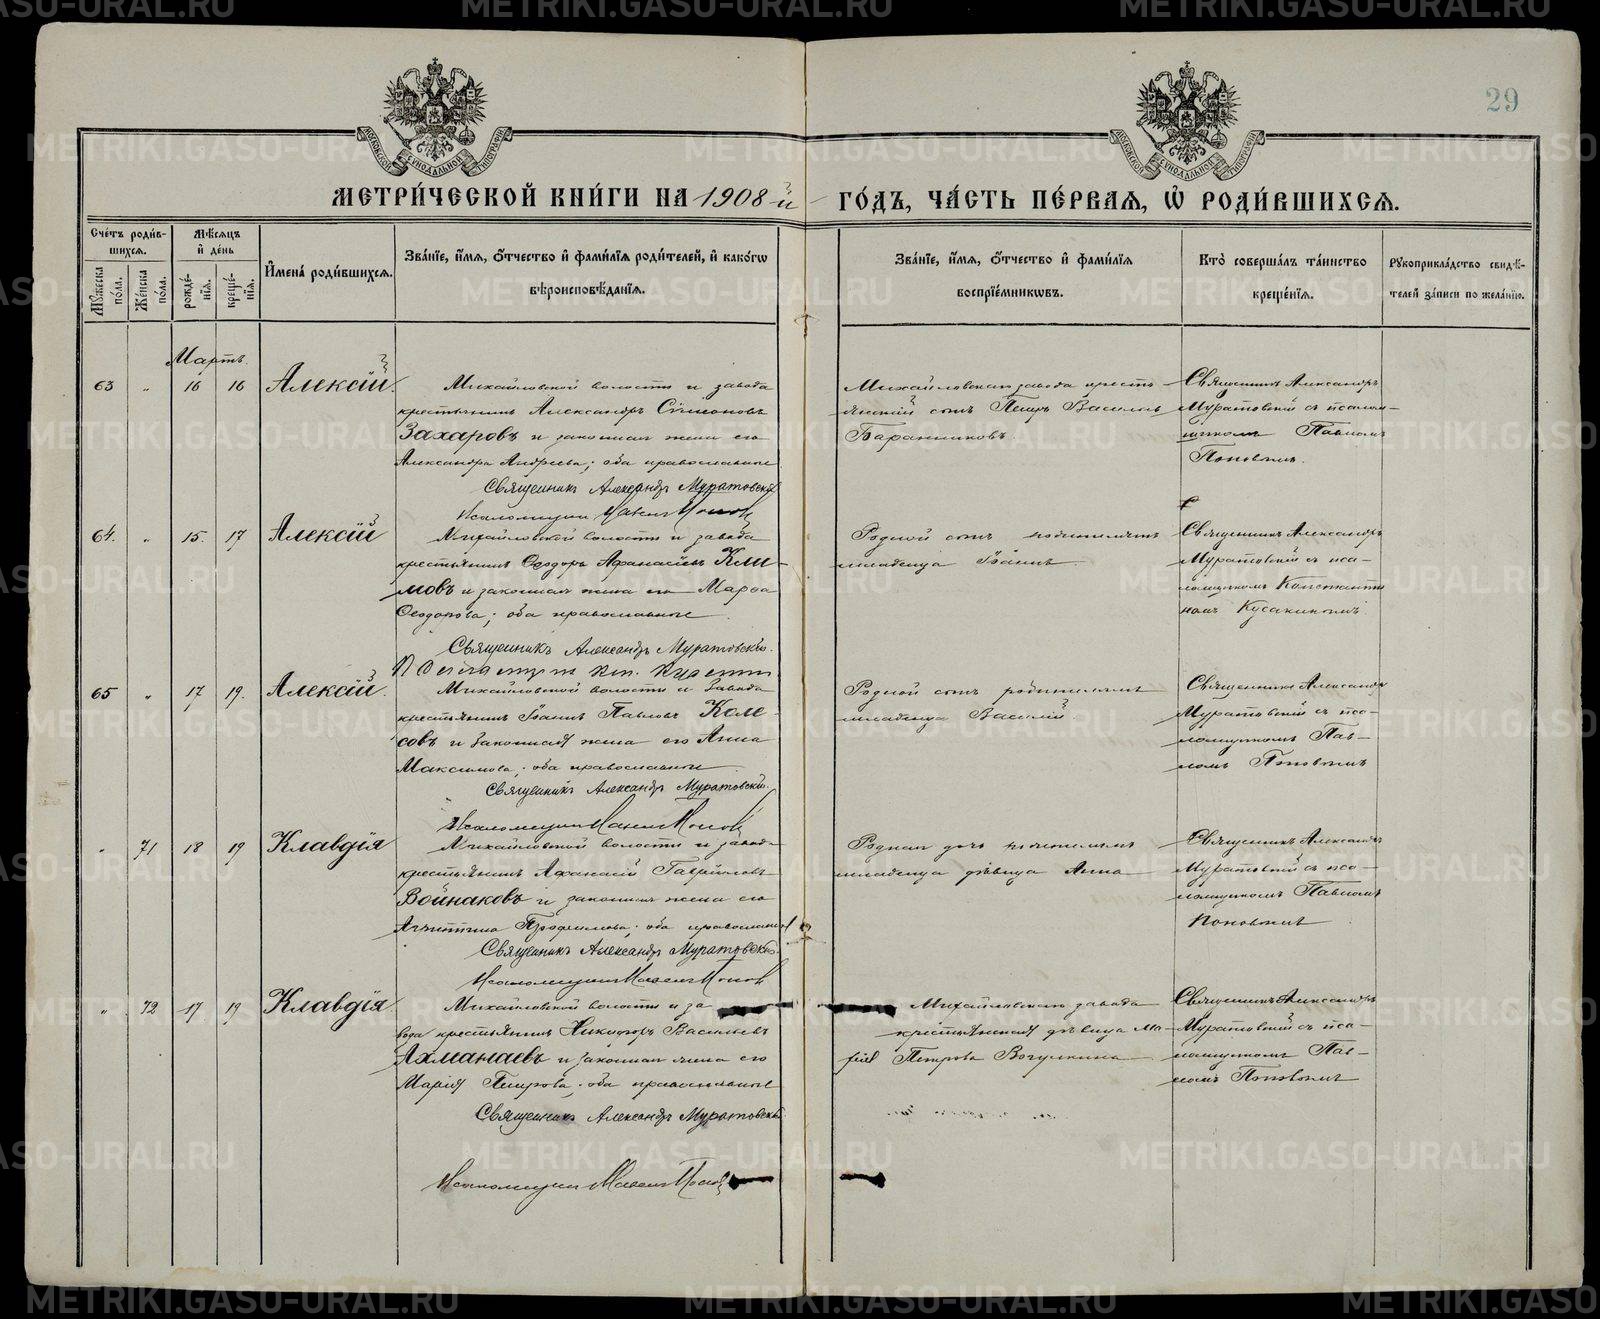 29
МОСКОВСКОЙ СѴНОДАЛЬНОЙ ТИПОГРАФІИ
МОСКОВСКОЙ СѴНОДАЛЬНОЙ ТИПОГРАФІИ
МЕТРИ́ЧЕСКОЙ КНИ́ГИ НА 1908-й ГО́ДЪ, ЧА́СТЬ ПЕ́РВАѦ, Ѡ҆ РОДИ́ВШИХСѦ.
Сче́тъ роди́в-
шихсѧ.
Мужеска по́ла.
Же́нска по́ла.
Мѣ́сѧцъ
и҆ де́нь
рожде́-
нїѧ.
креще́-
нїѧ.
И҆мена̀ роди́вшихсѧ.
Зва́нїе, и҆́мѧ, ѻ҆́тчество и҆ фами́лїѧ роди́телей, и҆ како́гѡ
вѣроисповѣ́данїѧ.
Зва́нїе, и҆́мѧ, ѻ҆́тчество и҆ фами́лїѧ
воспрїе́мникѡвъ.
Кто̀ соверша́лъ та́инство
креще́нїѧ.
Рꙋкоприкла́дство свидѣ́-
телей за́писи по жела́нїю.
Мартъ.
63 „ 16 16 Алексій
Михайловской волости и завода
крестьянинъ Александръ Сѵмеоновъ
Захаровъ и законная жена его
Александра Андреева; оба православные
Священникъ Александръ Муратовскій
Псаломщикъ Павелъ Поповъ
Михайловскаго завода кресть-
янскій сынъ Петръ Васильевъ
Баранниковъ.
Священникъ Александръ
Муратовскій съ псалом-
щикомъ Павломъ
Поповымъ.
64. „ 15. 17 Алексій
Михайловской волости и завода
крестьянинъ Ѳеодоръ Аѳанасіевъ Кли-
мовъ и законная жена его Марѳа
Ѳеодорова; оба православные
Священникъ Александръ Муратовскій.
Родной сынъ родителямъ
младенца Іоаннъ
Священникъ Александръ
Муратовскій съ пса-
ломщикомъ Константи
номъ Кусакинымъ
65 „ 17 19. Алексій
Михайловской волости и завода
крестьянинъ Іоаннъ Павловъ Коле-
совъ и законная жена его Анна
Максимова; оба православные
Священникъ Александръ Муратовскій.
Псаломщикъ Павелъ Поповъ
Родной сынъ родителямъ
младенца Василій
Священникъ Александръ
Муратовскій съ пса-
ломщикомъ Пав-
ломъ Поповымъ
„ 71 18 19 Клавдія
Михайловской волости и завода
крестьянинъ Аѳанасій Гавріиловъ
Войнаковъ и законная жена его
Агриппина Трофимова; оба православные
Священникъ Александръ Муратовскій.
Псаломщикъ Павелъ Поповъ
Родная дочь родителямъ
младенца дѣвица Анна
Священникъ Александръ
Муратовскій съ пса-
ломщикомъ Павломъ
Поповымъ
„ 72 17 19 Клавдія
Михайловской волости и за-
вода крестьянинъ Никифоръ Васильевъ
Ахманаевъ и законная жена его
Марія Петрова; оба православные
Священникъ Александръ Муратовскій
Псаломщикъ Павелъ Поповъ
Михайловскаго завода
крестьянская дѣвица Ма-
рія Петрова Вогулкина
Священникъ Александръ
Муратовскій съ пса-
ломщикомъ Пав-
ломъ Поповымъ
METRIKI.GASO-URAL.RU